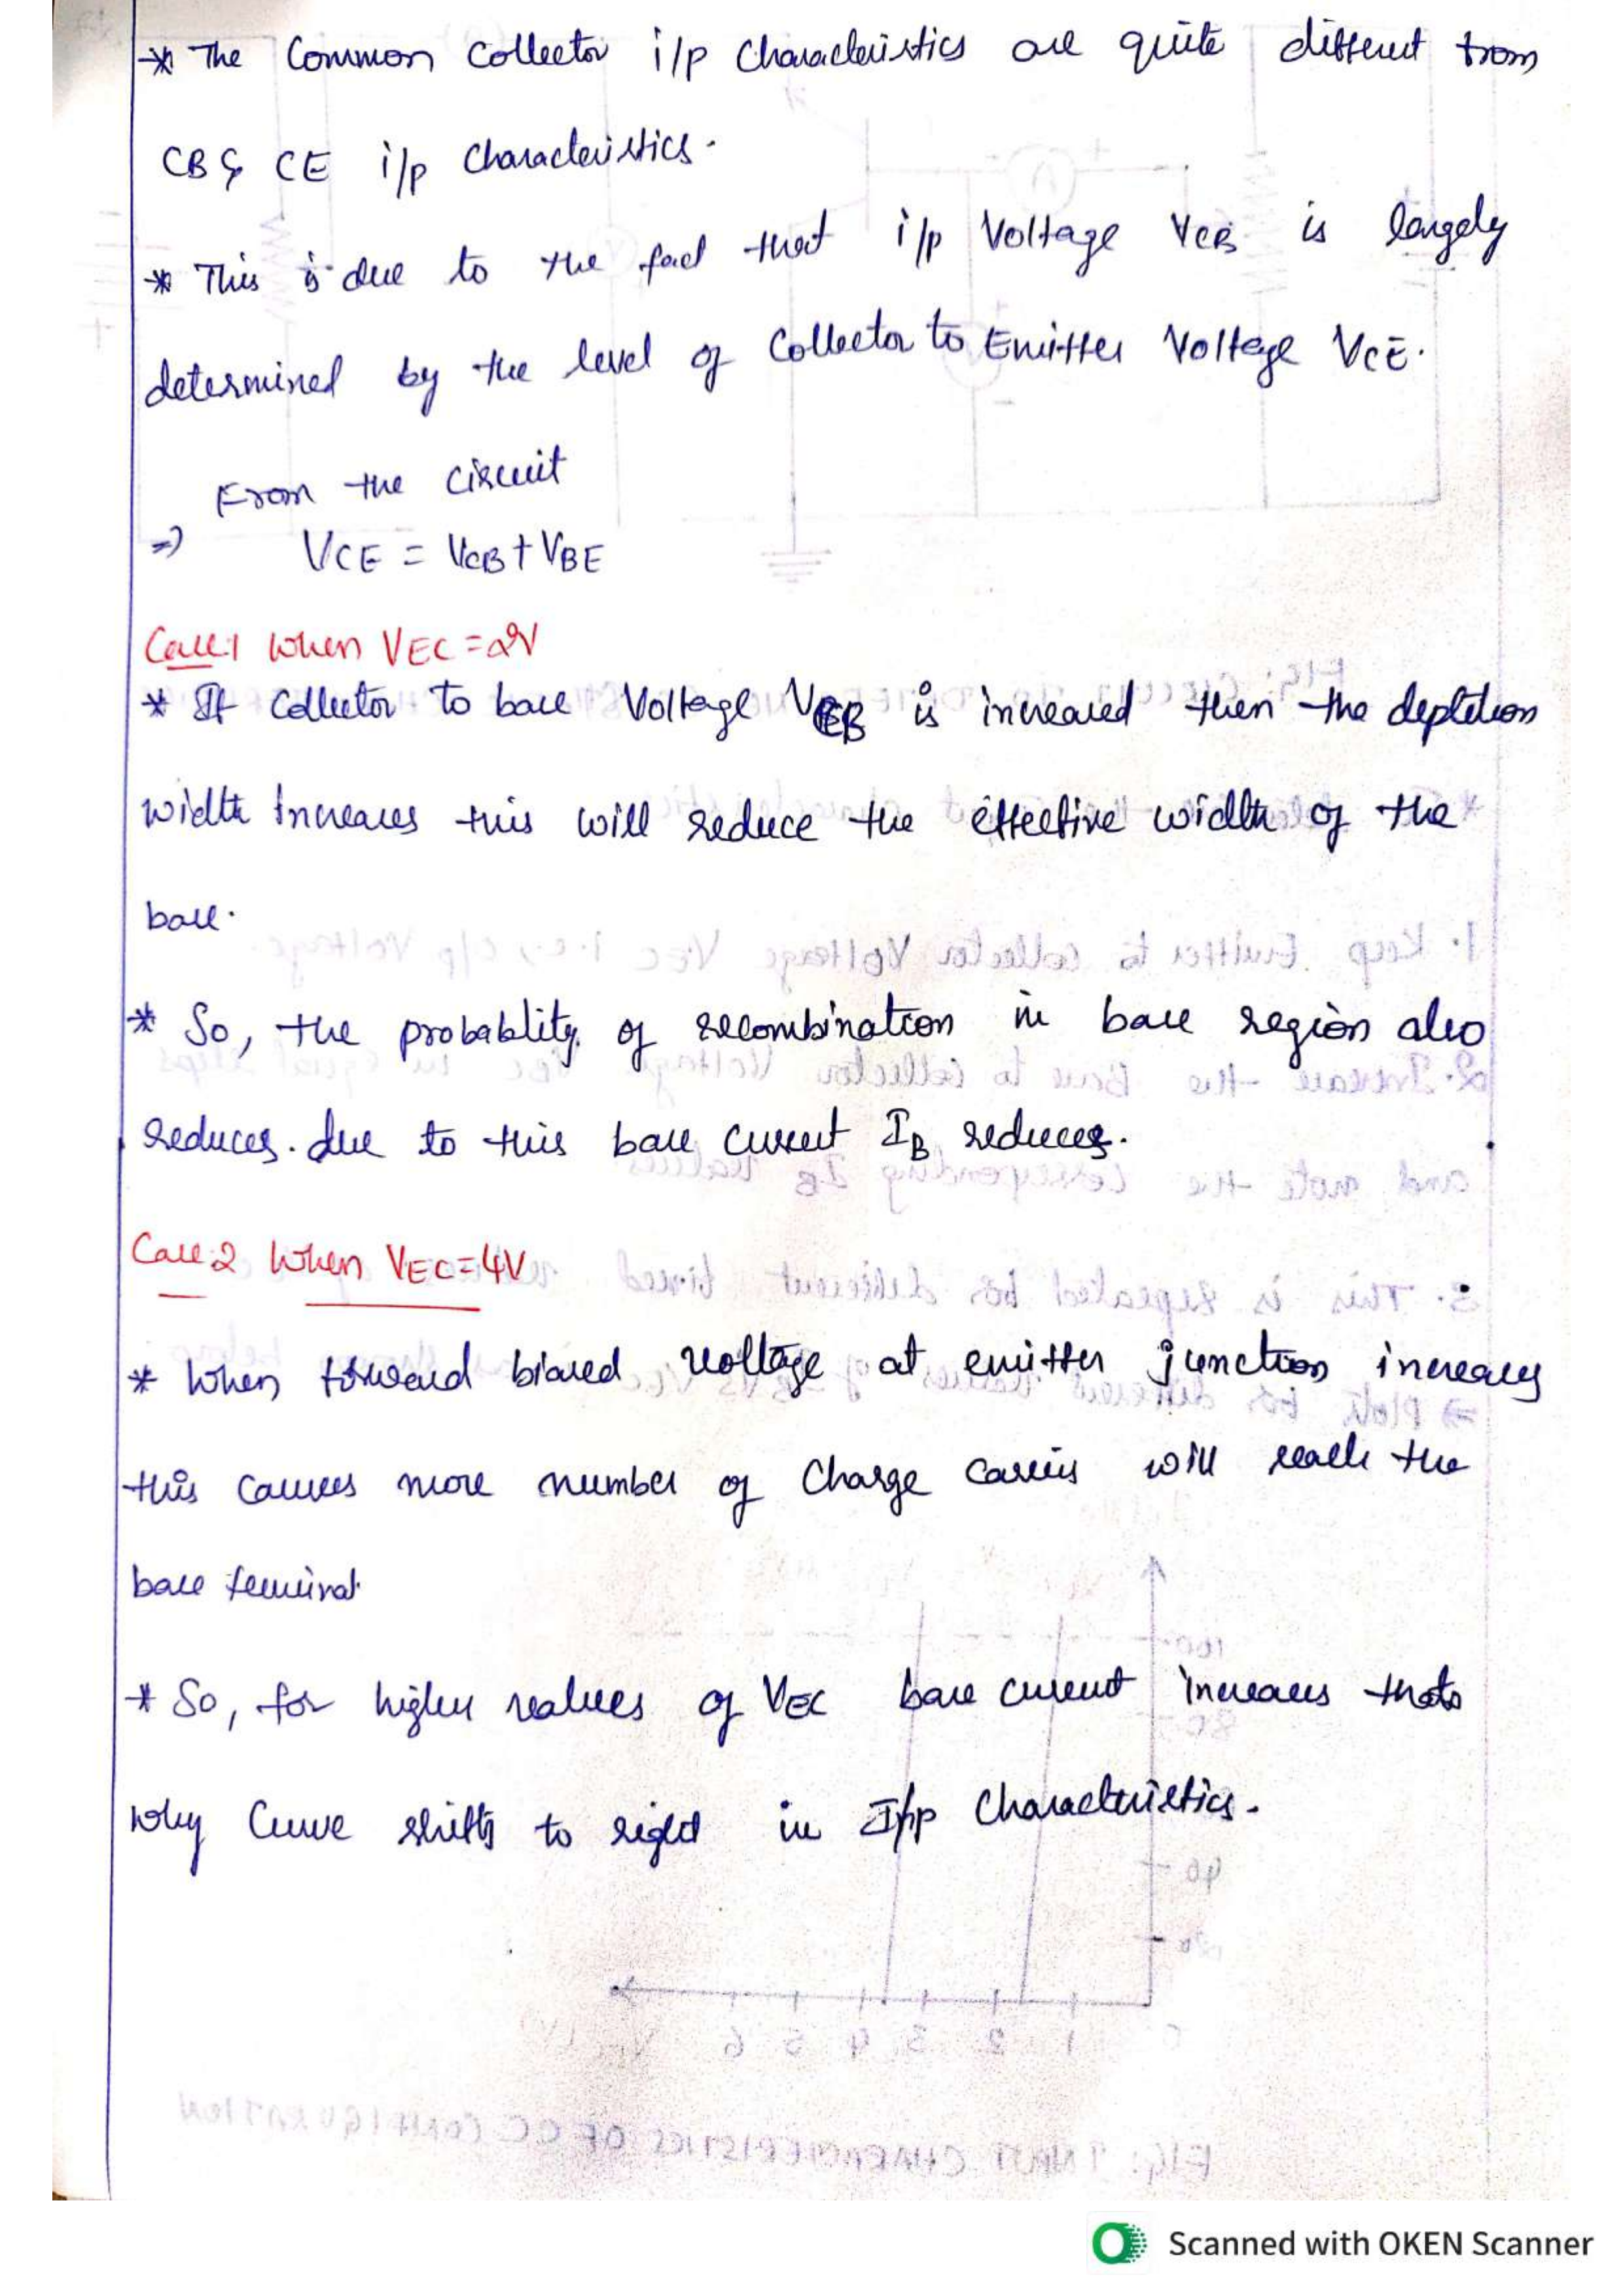 * The Common Collector i/p Characteristics are quite different from
CB & CE i/p Characteristics.
* This is due to the fact that i/p Voltage VCB is largely
determined by the level of Collector to Emitter Voltage VCE.
From the circuit
=> VCE = VCB + VBE
Case:1 When VEC = 2V
* If Collector to base Voltage VCB is increased then the depletion
width Increases this will reduce the effective width of the
base.
* So, the probablity of recombination in base region also
reduces. due to this base current IB reduces.
Case:2 When VEC = 4V
* When forward biased voltage at emitter junction increases
this causes more number of Charge carriers will reach the
base terminal
* So, for higher values of VEC base current increases thats
why Curve shifts to right in I/p Characteristics.
Scanned with OKEN Scanner